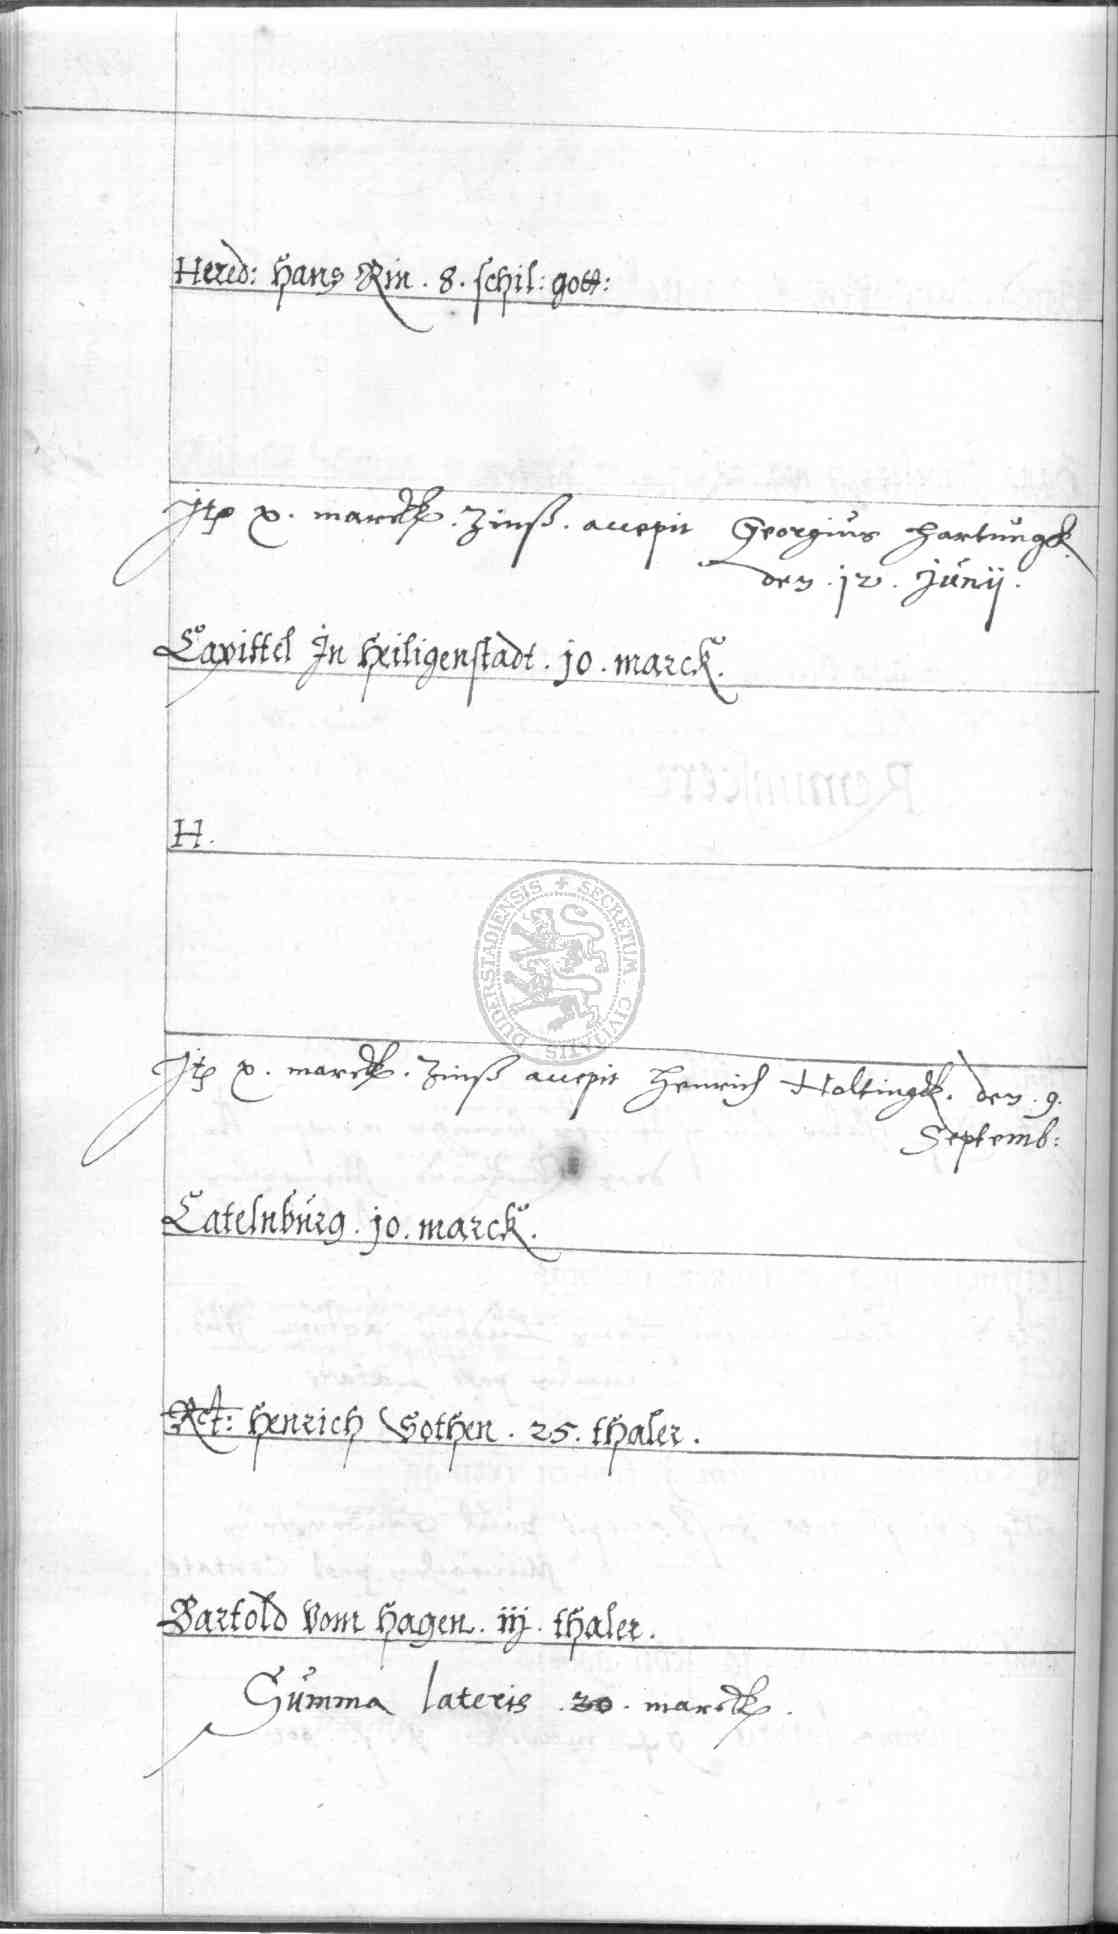 Hered: Hans Rin . 8 . schil: gott:
Jtp x . marck . Zinß . accepit Georgius Hartungk
den . 12 . Junij .
Capittel Jn Heiligenstadt . 10 . marck .
H .
SECRETUM CIVITATIS DUDERSTADIENSIS
Jtp x . marck . Zinß accepit Henrich Holtingk . den . 9 .
Septemb:
Catelnburg . 10 . marck .
Rct: Henrich Gothen . 25 . thaler .
Bartold Vom Hagen . iij . thaler .
Summa lateris . 20 . marck .